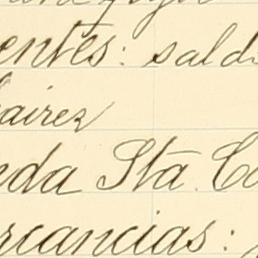 entes: sald
aires
eda Sta. Ca
rcancias: